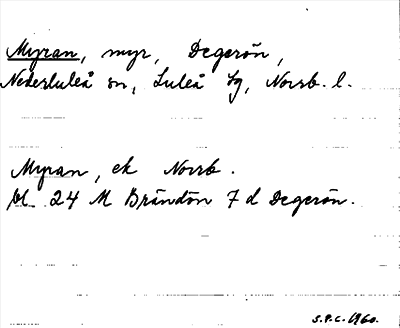 Myran, myr, Degerön,
Nederluleå sn, Luleå tg, Norrb. l.
Myran, ek Norrb.
bl. 24 M Brändön 7 d Degerön.
S.P.C. 1960.